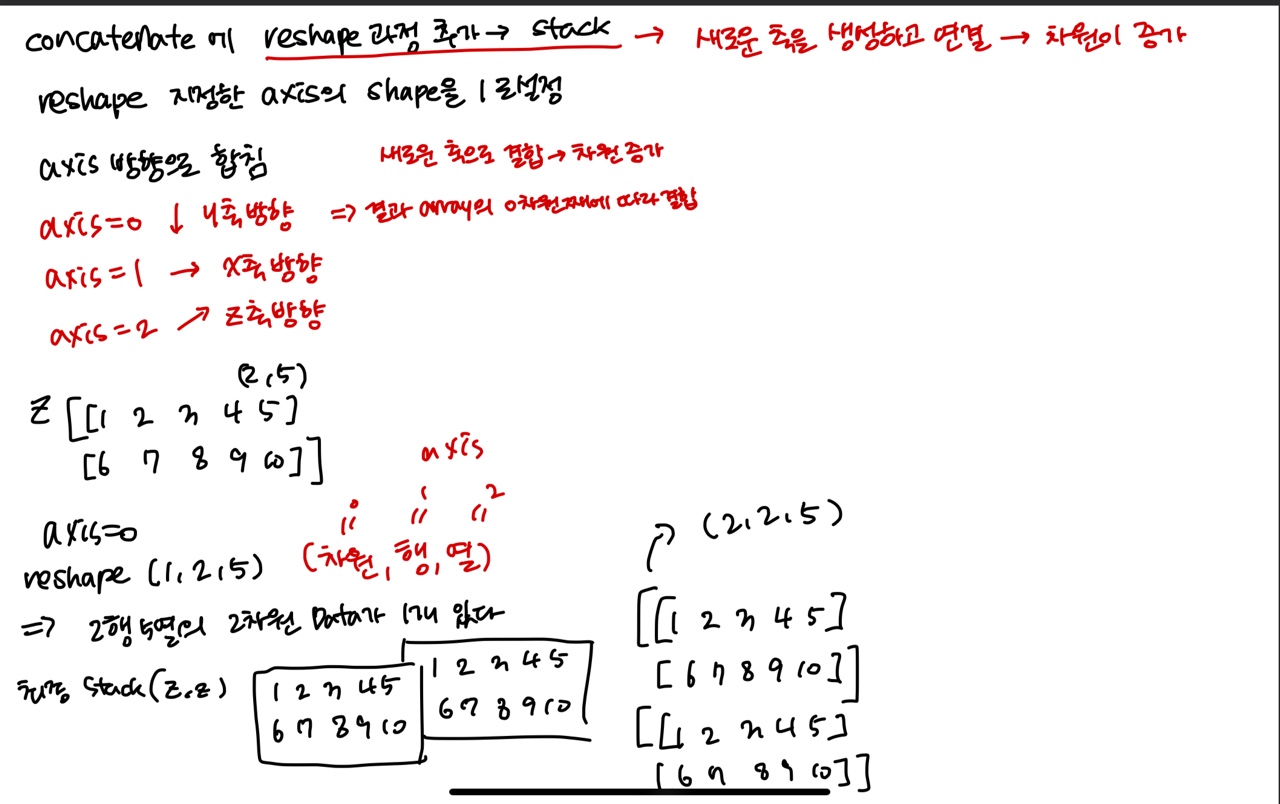 concatenate 에 reshape 과정 추가 → stack → 새로운 축을 생성하고 연결 → 차원이 증가
reshape 지정한 axis의 shape을 1로설정
axis 방향으로 합침 새로운 축으로 결합 → 차원 증가
axis=0 ↓ y축방향 => 결과 array의 0차원째에 따라 결합
axis=1 → x축방향
axis=2 ↗ z축방향
(2,5)
z [[1 2 3 4 5]
[6 7 8 9 10]]
axis
0 1 2
" " "
(차원, 행, 열)
axis=0
reshape (1,2,5)
=> 2행 5열의 2차원 Data가 1개 있다
최종 stack(z,z)
1 2 3 4 5
6 7 8 9 10
1 2 3 4 5
6 7 8 9 10
(2,2,5)
[[1 2 3 4 5]
[6 7 8 9 10]]
[[1 2 3 4 5]
[6 7 8 9 10]]